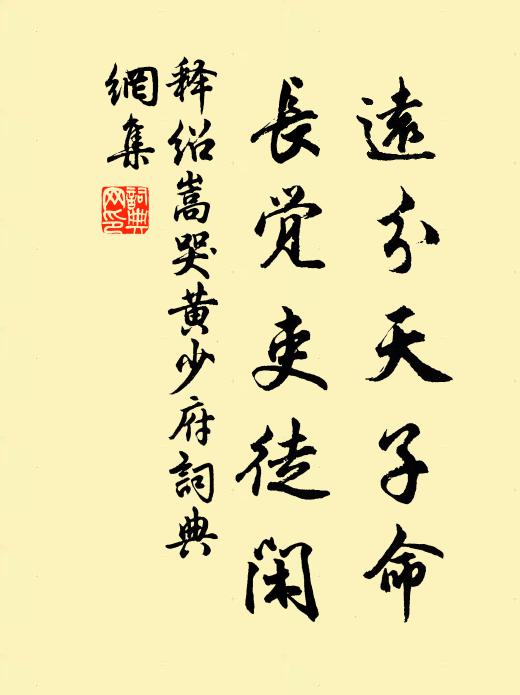 遠分天子命
長觉吏徒閑
释绍嵩哭黄少府詞典
網集
詞典
网印